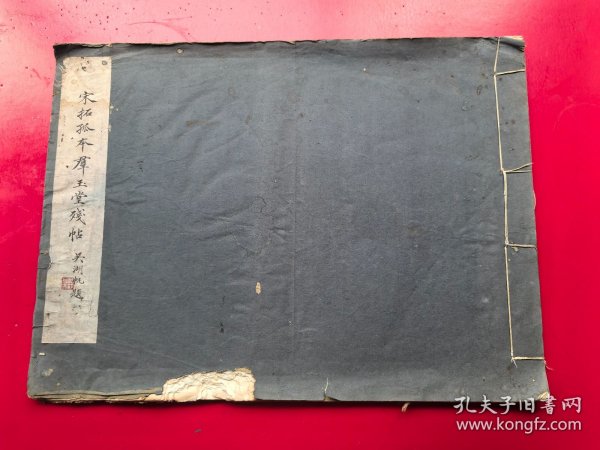 宋拓孤本羣玉堂殘帖
吴湖帆題
孔夫子旧書网
www.kongfz.com